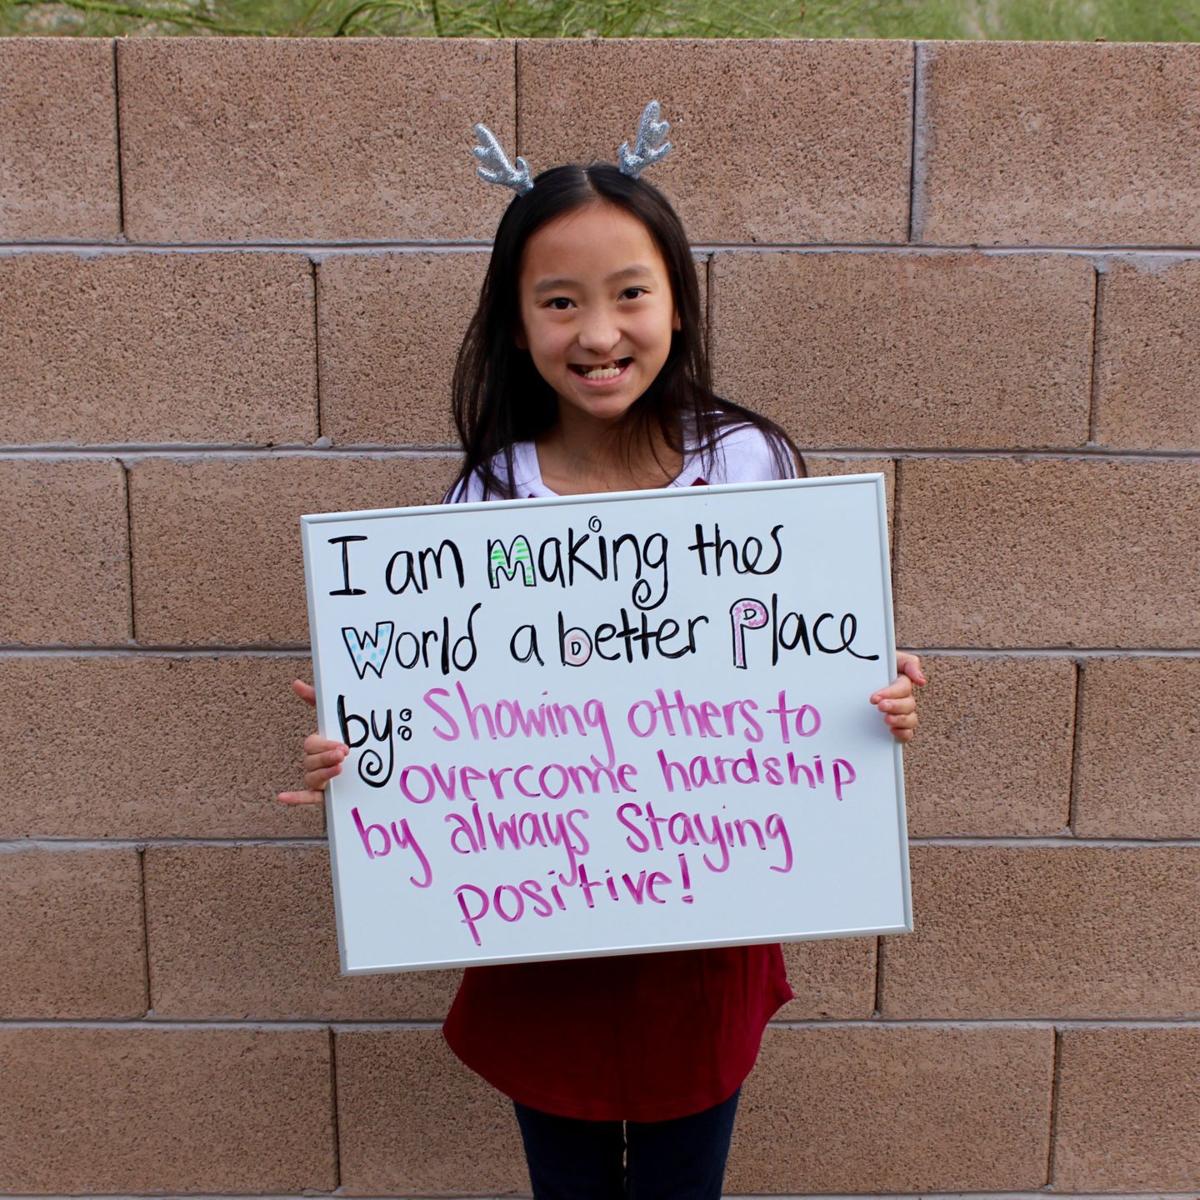 I am Making thes
World a better Place
by: Showing others to
overcome hardship
by always Staying
positive!